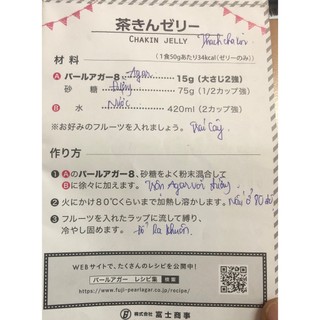 茶きんゼリー
CHAKIN JELLY Thạch chà kin
材料
(1食50gあたり34kcal(ゼリーのみ))
Ⓐ パールアガー8 Agar 15g (大さじ2強)
砂糖 Đường 75g (1/2カップ強)
Ⓑ 水 Nước 420ml (2カップ強)
※お好みのフルーツを入れましょう。 Trái Cây
作り方
❶ Ⓐのパールアガー8、砂糖をよく粉末混合して
Ⓑに徐々に加えます。 Trộn Agar với đường
❷ 火にかけ80℃くらいまで加熱し溶かします。 Nấu ở 80 độ
❸ フルーツを入れたラップに流して縛り、
冷やし固めます。 Đổ ra khuôn
WEBサイトで、たくさんのレシピを公開中!
パールアガー レシピ集 検索
https://www.fuji-pearlagar.co.jp/recipe/
株式会社 富士商事